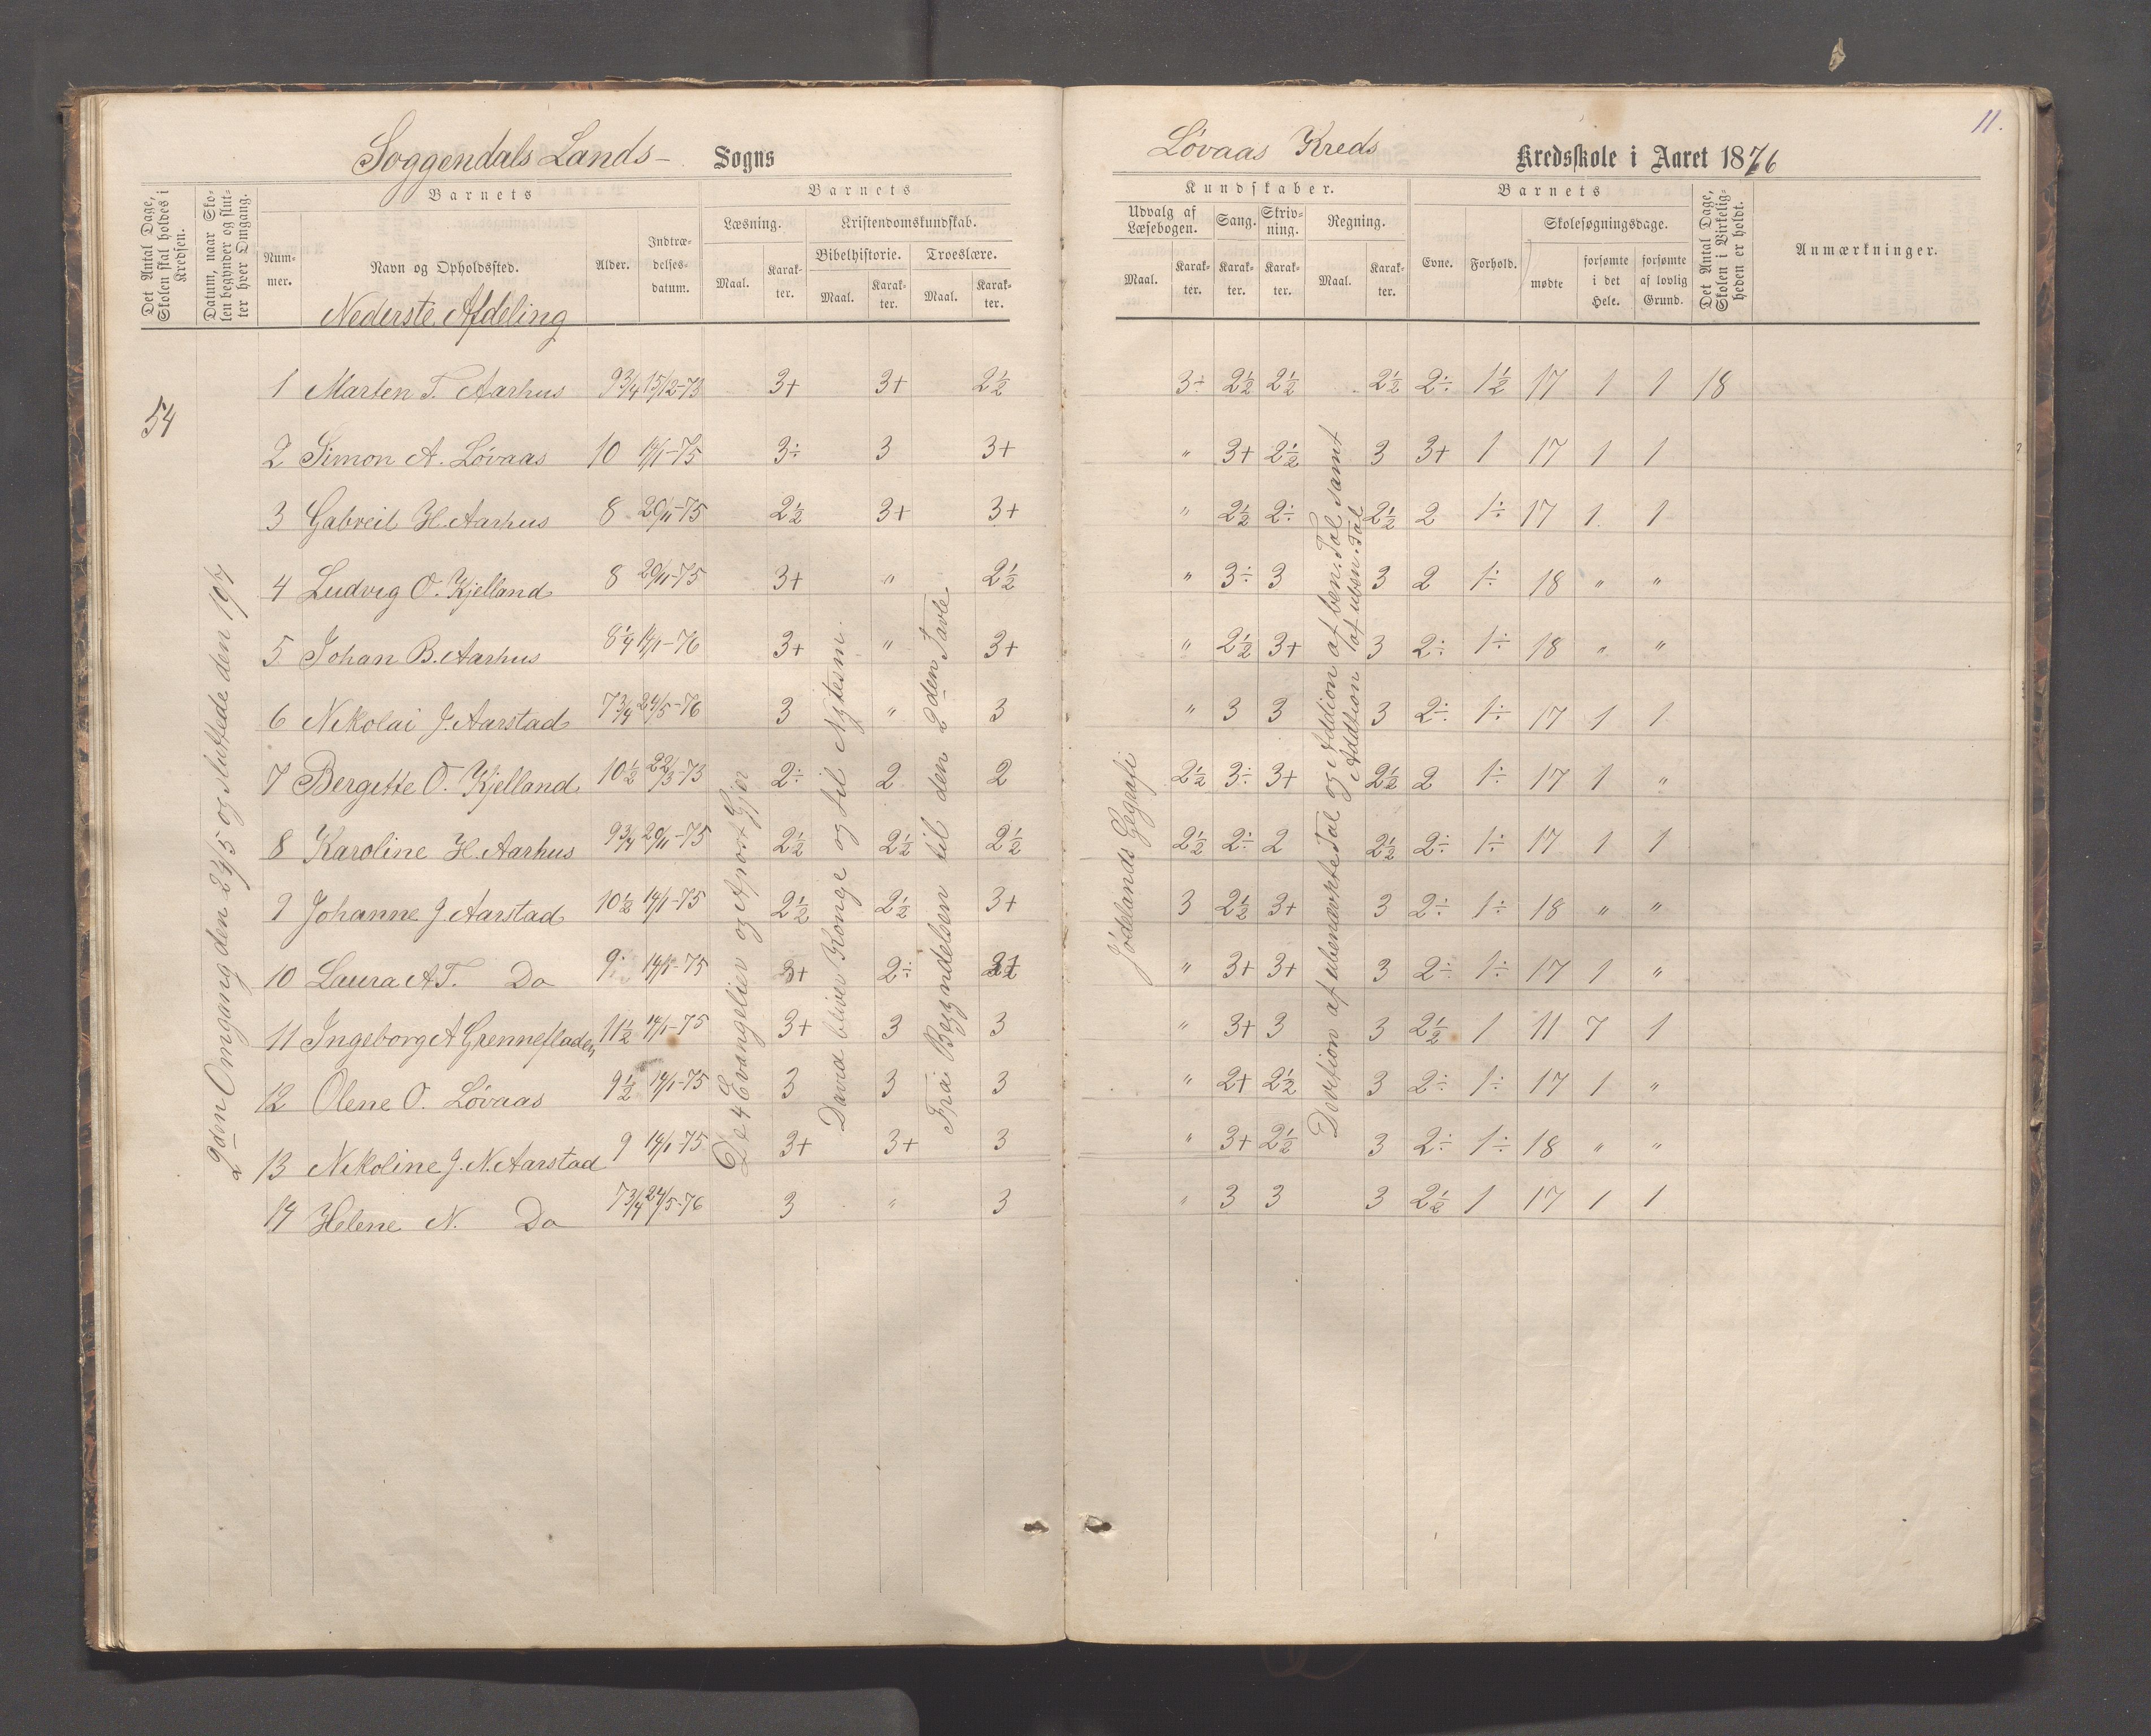 11.
Soggendals Lands- Sogns Løvaas Kreds Kredsskole i Aaret 1876
Det Antal Dage, Skolen skal holdes i Kredsen.
Datum, naar Skolen begynder og slutter hver Omgang.
Barnets
Nummer.
Navn og Opholdssted.
Alder.
Indtrædelsesdatum.
Barnets
Læsning.
Maal.
Karakter.
Kristendomskundskab.
Bibelhistorie.
Maal.
Karakter.
Troeslære.
Maal.
Karakter.
Kundskaber.
Udvalg af Læsebogen.
Maal.
Karakter.
Sang.
Karakter.
Skrivning.
Karakter.
Regning.
Maal.
Karakter.
Barnets
Evne.
Forhold.
Skolesøgningsdage.
mødte
forsømte i det Hele.
forsømte af lovlig Grund.
Det Antal Dage, Skolen i Virkeligheden er holdt.
Anmærkninger.
Nederste Afdeling
54
2den Omgang den 24/5 og sluttede den 19/7
De 4 Evangelier og Apost Gjer
David bliver Konge og til Nytestm.
Fra Begyndelsen til den 2den Tavle
Jødelands Gegrafi
Divition af ubenævnte Tal og i Addion af ben. Tal samt
i Addtion af uben. Tal
1 Marten T. Aarhus 9 3/4 15/12-73 3+ 3+ 2 1/2 3÷ 2 1/2 2 1/2 2 1/2 2÷ 1 1/2 17 1 1 18
2 Simon A. Løvaas 10 14/1-75 3÷ 3 3+ " 3+ 2 1/2 3 3+ 1 17 1 1
3 Gabreil H. Aarhus 8 20/11-75 2 1/2 3+ 3+ " 2 1/2 2÷ 2 1/2 2 1÷ 17 1 1
4 Ludvig O. Kjelland 8 20/11-75 3+ " 2 1/2 " 3÷ 3 3 2 1÷ 18 " "
5 Johan B. Aarhus 8 1/4 14/1-76 3+ " 3+ " 2 1/2 3+ 3 2÷ 1÷ 18 " "
6 Nikolai J. Aarstad 7 3/4 24/5-76 3 " 3 " 3 3 3 2÷ 1÷ 17 1 1
7 Bergitte O. Kjelland 10 1/2 22/3-73 2÷ 2 2 2 1/2 3÷ 3+ 2 1/2 2 1÷ 17 1 "
8 Karoline H. Aarhus 9 3/4 20/11-75 2 1/2 2 1/2 2 1/2 2 1/2 2÷ 2 2 1/2 2÷ 1÷ 17 1 1
9 Johanne J Aarstad 10 1/2 14/1-75 2 1/2 2 1/2 3+ 3 2 1/2 3+ 3 2÷ 1÷ 18 " "
10 Laura A T. Do 9 14/1-75 3+ 2÷ " 3+ 3+ 3 2÷ 1÷ 17 1 "
11 Ingeborg A Grennefladen 11 1/2 14/1-75 3+ 3 3 " 3+ 3 3 2 1/2 1 11 7 1
12 Olene O. Løvaas 9 1/2 14/1-75 3 3 3 " 2+ 2 1/2 3 2÷ 1÷ 17 1 "
13 Nikoline J. N. Aarstad 9 14/1-75 3+ 3+ 3 " 3+ 2 1/2 3 2÷ 1÷ 18 " "
14 Helene N. Do 7 3/4 24/5-76 3 " 3 " 3 3 3 2 1/2 1 17 1 1